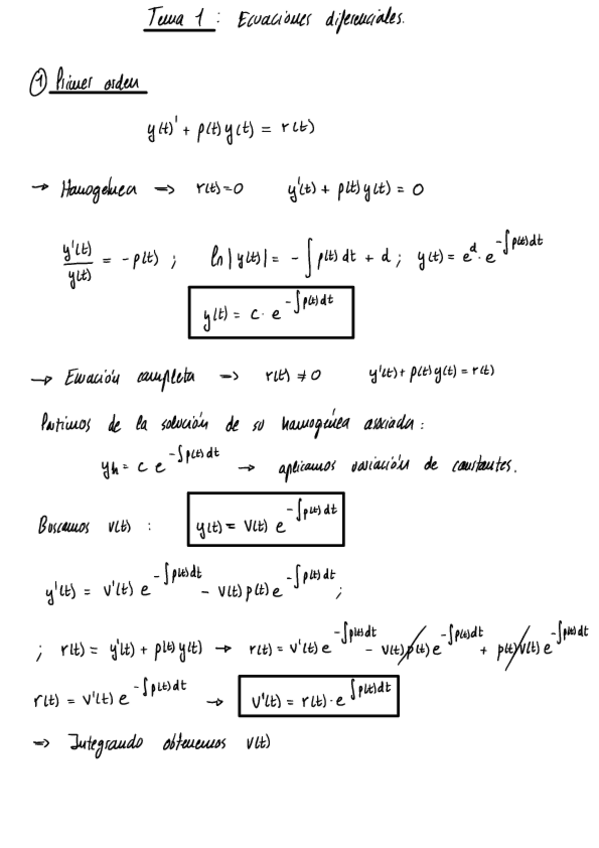 Tema 1 : Ecuaciones diferenciales.
① Primer orden
y(t)' + p(t) y(t) = r(t)
→ Homogénea → r(t)=0 y'(t) + p(t) y(t) = 0
y'(t)/y(t) = -p(t) ; ln|y(t)| = -∫p(t) dt + d ; y(t) = e^d · e^(-∫p(t)dt)
y(t) = c · e^(-∫p(t)dt)
→ Ecuación completa → r(t) ≠ 0 y'(t) + p(t) y(t) = r(t)
Partimos de la solución de su homogénea asociada :
yh = c e^(-∫p(t)dt) → aplicamos variación de constantes.
Buscamos v(t) : y(t) = v(t) e^(-∫p(t)dt)
y'(t) = v'(t) e^(-∫p(t)dt) - v(t) p(t) e^(-∫p(t)dt) ;
; r(t) = y'(t) + p(t) y(t) → r(t) = v'(t) e^(-∫p(t)dt) - v(t) p(t) e^(-∫p(t)dt) + p(t) v(t) e^(-∫p(t)dt)
r(t) = v'(t) e^(-∫p(t)dt) → v'(t) = r(t) · e^(∫p(t)dt)
⇒ Integrando obtenemos v(t)